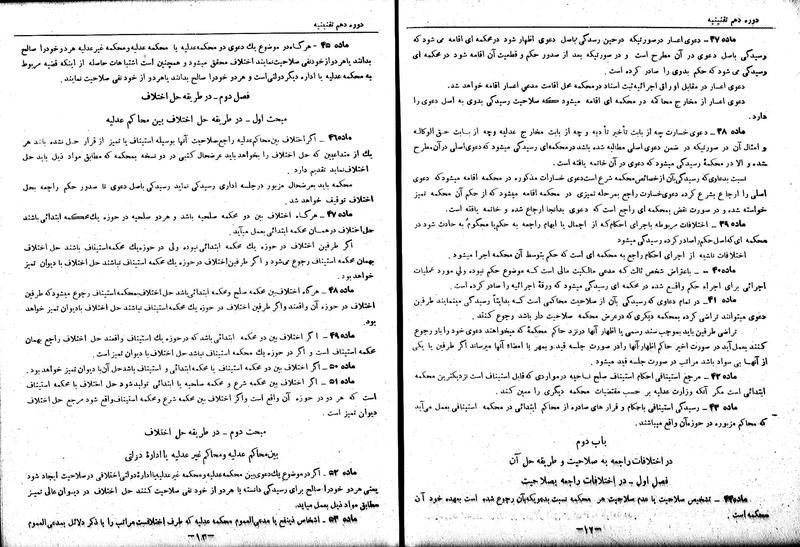 دوره دهم تقنینیه
ماده ۳۷ - دعوی اعسار در صورتیکه در حین رسیدگی باصل دعوی اظهار شود در محکمه ای اقامه می شود که
رسیدگی باصل دعوی در آن مطرح است و در صورتیکه بعد از صدور حکم و قطعیت آن اقامه شود در محکمه ای
رسیدگی می شود که حکم بدوی را صادر کرده است .
دعوی اعسار در مقابل اوراق اجرائیه ثبت اسناد در محکمه محل اقامت مدعی اعسار اقامه خواهد شد.
دعوی اعسار از مخارج محاکمه در محکمه ای اقامه میشود که صلاحیت رسیدگی بدوی به اصل دعوی را
دارد .
ماده ۳۸ - دعوی خسارت چه از بابت تأخیر تأدیه و چه از بابت مخارج عدلیه وچه از بابت حق الوکاله
و امثال آن در صورتیکه در ضمن دعوی اصلی مطالبه شده باشد در محکمه ای رسیدگی میشود که دعوی اصلی در آن مطرح
شده و الا در محکمهٔ رسیدگی میشود که دعوی در آن خاتمه یافته است .
نسبت بدعاوی که رسیدگی بآن از خصائص محکمه شرع است دعوی خسارات مذکوره در محکمه اقامه میشود که دعوی
اصلی را ارجاع بشرع کرده دعوی خسارت راجع بمرحله تمیزی در محکمه اقامه میشود که از حکم آن محکمه تمیز
خواسته شده و در صورت نقض بمحکمه ای راجع است که دعوی بدانجا ارجاع شده و خاتمه یافته است .
ماده ۳۹ - اختلافات مربوطه باجرای احکام که از اجمال یا ابهام راجعه به حکم یا محکوم به حادث شود در
محکمه ای که اصل حکم را صادر کرده رسیدگی میشود
اختلافات ناشیه از اجرای احکام راجع به محکمه ای است که حکم بتوسط آن محکمه اجرا میشود .
ماده ۴۰ - باعتراض شخص ثالث که مدعی مالکیت مالی است که موضوع حکم نبوده ولی مورد عملیات
اجرائی برای اجراء حکم واقع شده در محکمه ای رسیدگی میشود که ورقهٔ اجرائیه را صادر کرده است .
ماده ۴۱ - در تمام دعاوی که رسیدگی بآن از صلاحیت محاکمی است که بدایتاً رسیدگی مینمایند طرفین
دعوی میتوانند تراضی کرده بمحکمه دیگری که در عرض محکمه صلاحیت دار باشد رجوع کنند .
تراضی طرفین باید بموجب سند رسمی یا اظهار آنها در نزد حاکم محکمهٔ که میخواهند دعوی خود را باو رجوع
کنند بعمل آید در صورت اخیر حاکم اظهار آنها را در صورت جلسه قید و بمهر یا امضاء آنها میرساند اگر طرفین یا یکی
از آنها بی سواد باشد مراتب در صورت جلسه قید میشود .
ماده ۴۲ - مرجع استینافی احکام صلح ناحیه در مواردی که قابل استیناف است نزدیکترین محکمه
ابتدائی است مگر آنکه وزارت عدلیه بر حسب مقتضیات محکمه دیگری را معین کنند .
ماده ۴۳ - رسیدگی استینافی باحکام و قرار های صادره از محاکم ابتدائی در محکمه استینافی بعمل می آید
که محاکم مزبوره در حوزه آن واقع میباشند.
باب دوم
در اختلافات راجعه به صلاحیت و طریقه حل آن
فصل اول - در اختلافات راجعه بصلاحیت
ماده ۴۴ - تشخیص صلاحیت یا عدم صلاحیت هر محکمه نسبت بدعویکه بآن رجوع شده است بعهده خود آن
محکمه است .
-۱۲-
دوره دهم تقنینیه
ماده ۴۵ - هرگاه در موضوع یك دعوی دو محکمه عدلیه یا محکمه عدلیه و محکمه غیر عدلیه هر دو خود را صالح
بدانند یا هر دو از خود نفی صلاحیت نمایند اختلاف محقق میشود و همچنین است اشتباهات حاصله از اینکه قضیه مربوط
به محکمه عدلیه یا اداره دیگر دولتی است و هر دو خود را صالح بدانند یا هر دو از خود نفی صلاحیت نمایند .
فصل دوم - در طریقه حل اختلاف
مبحث اول - در طریقه حل اختلاف بین محاکم عدلیه
ماده ۴۶ - اگر اختلاف بین محاکم عدلیه راجع بصلاحیت آنها بوسیله استیناف یا تمیز از قرار حل نشده باشد هر
یك از متداعیین که حل اختلاف را بخواهد باید عرضحال کتبی در دو نسخه بمحکمه که مطابق مواد ذیل باید حل
اختلاف نماید تقدیم دارد .
محکمه باید بعرضحال مزبور در جلسه اداری رسیدگی نماید رسیدگی باصل دعوی تا صدور حکم راجعه بحل
اختلاف توقیف خواهد شد .
ماده ۴۷ - هرگاه اختلاف بین دو محکمه صلحیه باشد و هر دو صلحیه در حوزه یك محکمه ابتدائی باشند
حل اختلاف در همان محکمه ابتدائی بعمل میآید.
اگر طرفین اختلاف در حوزه یك محکمه ابتدائی نبوده ولی در حوزه یك محکمه استیناف باشند حل اختلاف
بهمان محکمه استیناف رجوع می شود و اگر طرفین اختلاف در حوزه یك محکمه استیناف نباشند حل اختلاف با دیوان تمیز
خواهد بود .
ماده ۴۸ - هرگاه اختلاف بین محکمه صلح و محکمه ابتدائی باشد حل اختلاف بمحکمه استیناف رجوع میشود که طرفین
اختلاف در حوزه آن واقعند و اگر طرفین اختلاف در حوزه یك محکمه استیناف نباشند حل اختلاف با دیوان تمیز خواهد
بود.
ماده ۴۹ - اگر اختلاف بین دو محکمه ابتدائی باشد که در حوزه یك استیناف واقعند حل اختلاف راجع بهمان
محکمه استیناف است و اگر در حوزه یك محکمه استیناف نباشد حل اختلاف با دیوان تمیز است .
ماده ۵۰ - اگر اختلاف بین دو محکمه استیناف یا محکمه ابتدائی و استیناف باشد حل آن با دیوان تمیز خواهد بود .
ماده ۵۱ - اگر اختلاف بین محکمه شرع و محکمه صلحیه یا ابتدائی تولید شود حل اختلاف با محکمه استیناف
است که هر دو در حوزه آن واقع است و اگر اختلاف بین محکمه شرع و محکمه استیناف واقع شود مرجع حل اختلاف
دیوان تمیز است .
مبحث دوم - در طریقه حل اختلاف
بین محاکم عدلیه و محاکم غیر عدلیه یا ادارهٔ دولتی
ماده ۵۲ - اگر در موضوع یك دعوی بین محکمه عدلیه و محکمه غیر عدلیه یا ادارهٔ دولتی اختلافی در صلاحیت ایجاد شود
یعنی هر دو خود را صالح برای رسیدگی دانسته یا هر دو از خود نفی صلاحیت کنند حل اختلاف در دیوان عالی تمیز
مطابق مواد ذیل بعمل میآید.
ماده ۵۳ - اشخاص ذینفع یا مدعی العموم محکمه عدلیه که طرف اختلاف است مراتب را با ذکر دلائل بمدعی العموم
-۱۳-